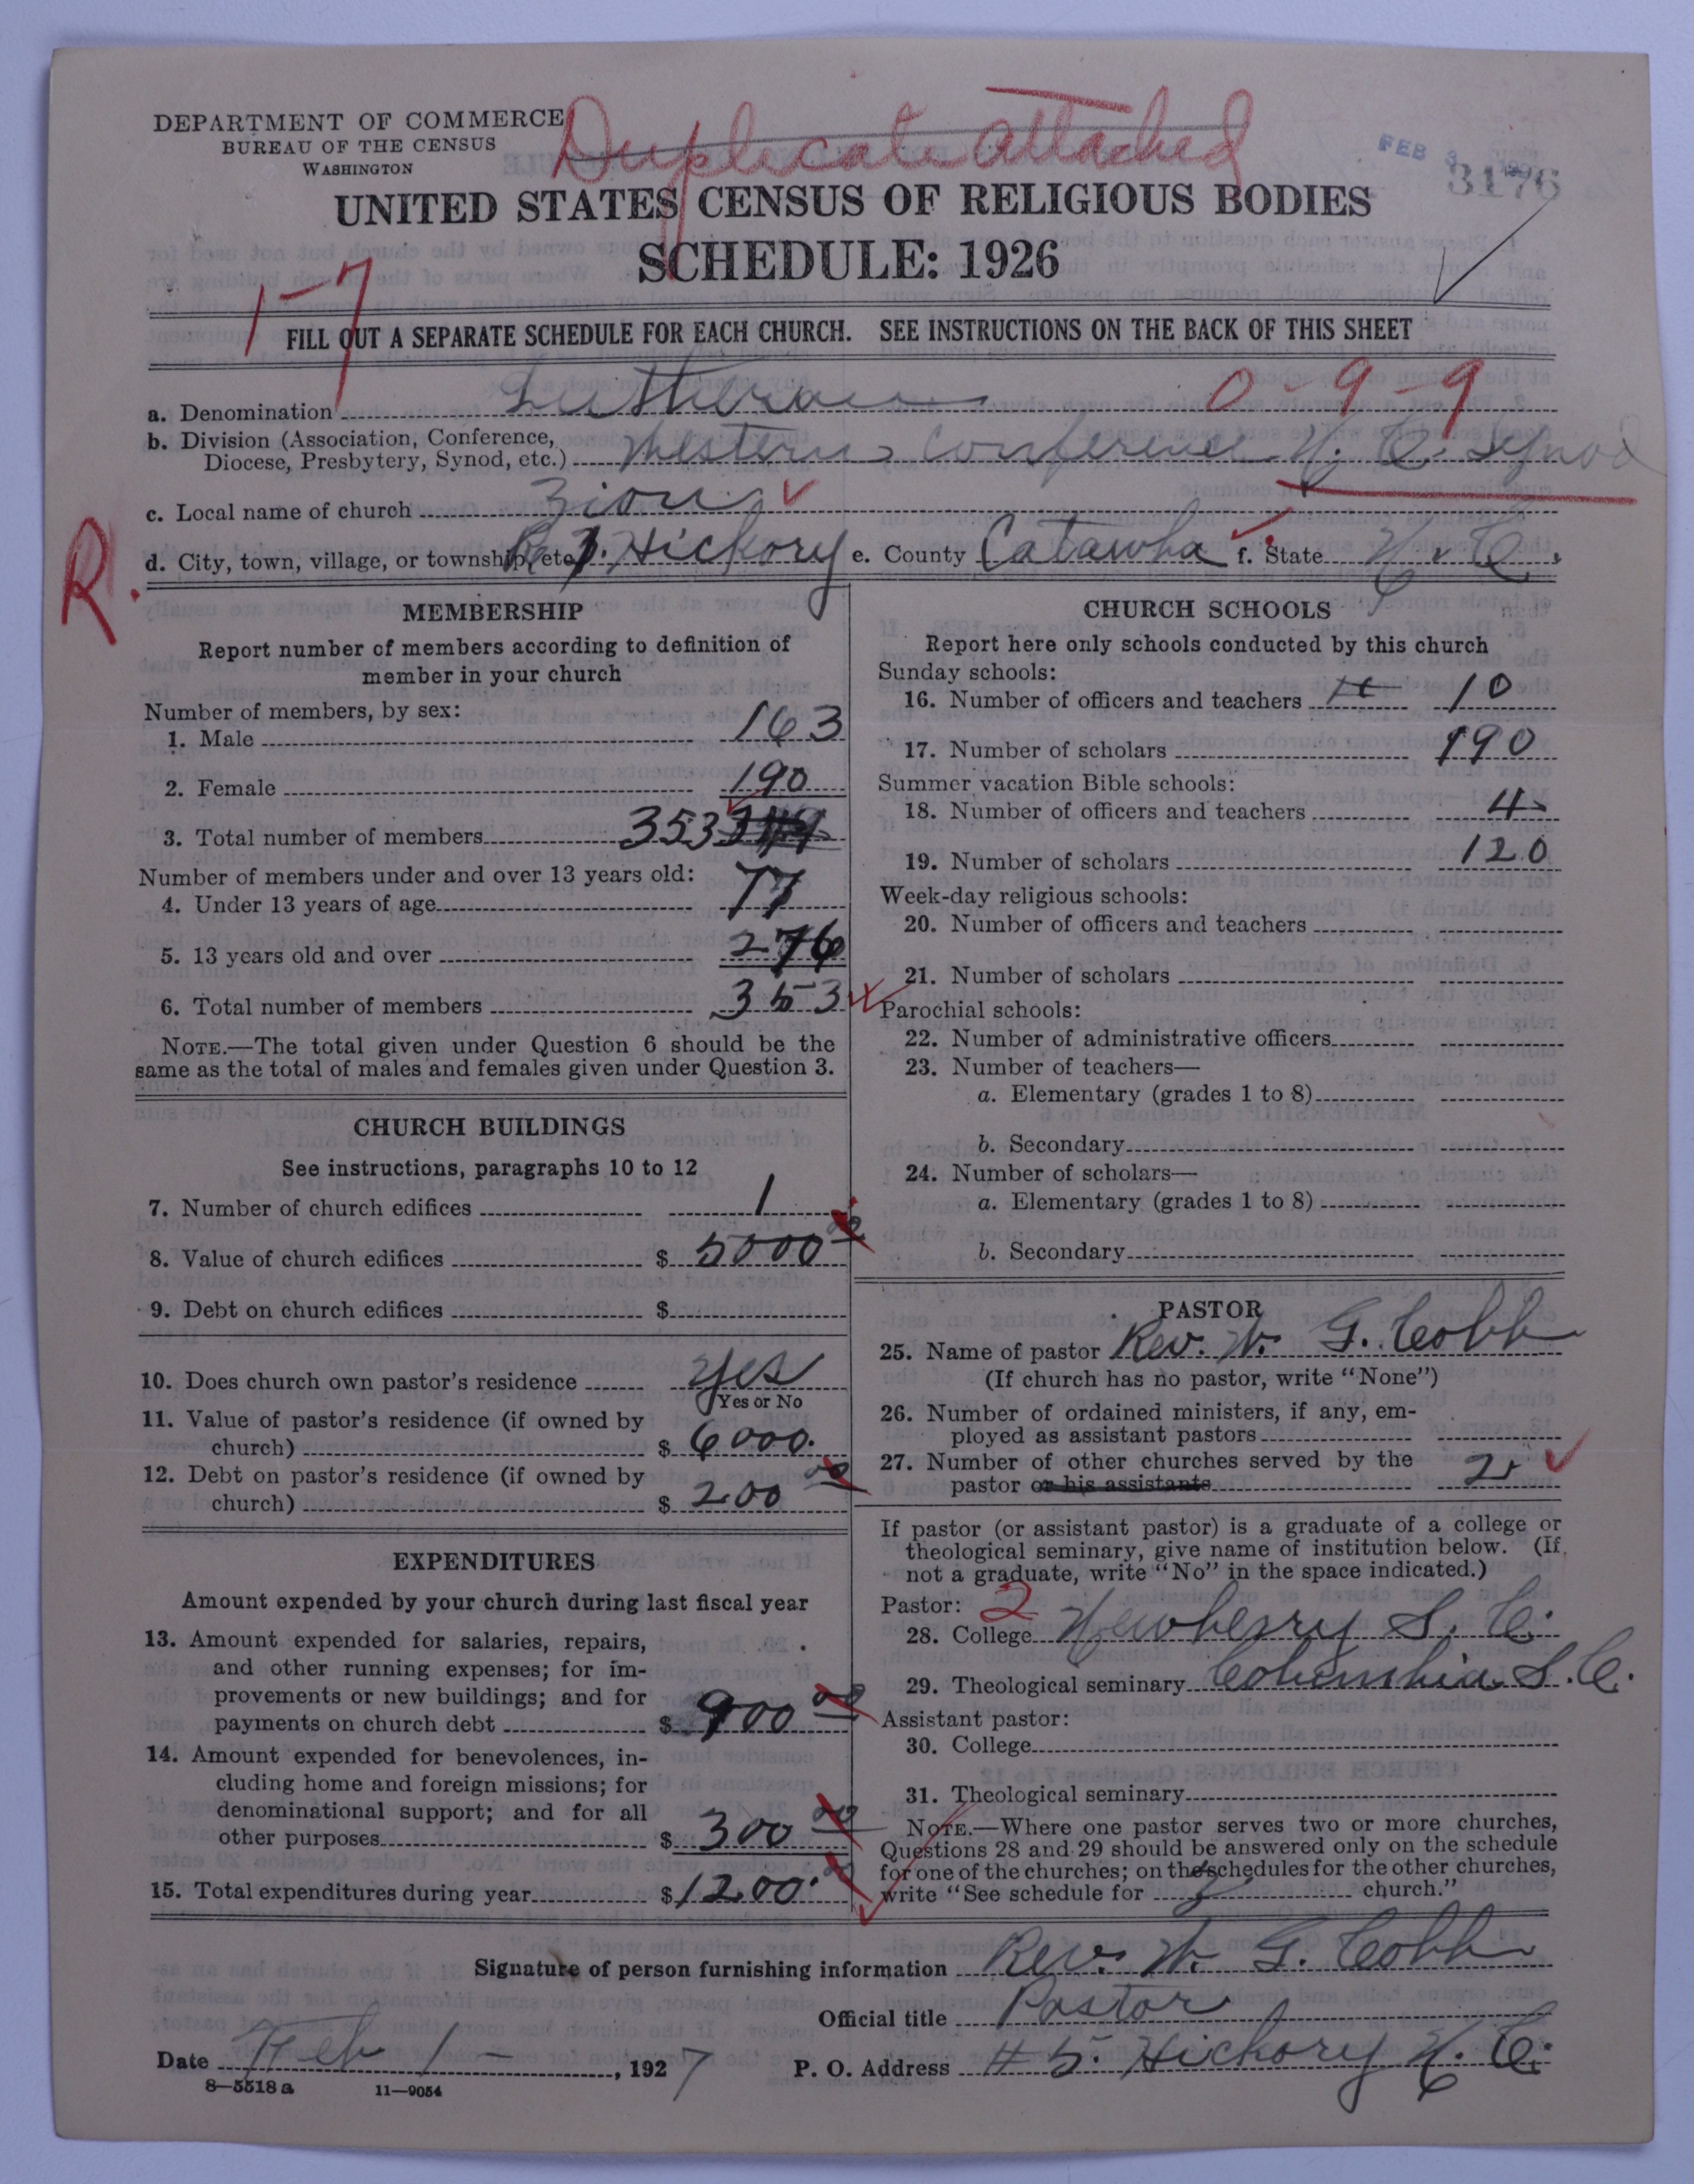 DEPARTMENT OF COMMERCE
BUREAU OF THE CENSUS
WASHINGTON
Duplicate attached
FEB 3
3176
UNITED STATES CENSUS OF RELIGIOUS BODIES
SCHEDULE: 1926
1-7
FILL OUT A SEPARATE SCHEDULE FOR EACH CHURCH. SEE INSTRUCTIONS ON THE BACK OF THIS SHEET
a. Denomination Lutheran 0-9-9
b. Division (Association, Conference,
Diocese, Presbytery, Synod, etc.) Western Conference N. C. Synod
c. Local name of church Zion
R.
d. City, town, village, or township, etc. Hickory e. County Catawba f. State N. C.
MEMBERSHIP
Report number of members according to definition of
member in your church
Number of members, by sex:
1. Male 163
2. Female 190
3. Total number of members 353
Number of members under and over 13 years old:
4. Under 13 years of age 77
5. 13 years old and over 276
6. Total number of members 353
NOTE.—The total given under Question 6 should be the
same as the total of males and females given under Question 3.
CHURCH BUILDINGS
See instructions, paragraphs 10 to 12
7. Number of church edifices 1
8. Value of church edifices $ 5000 00
9. Debt on church edifices $
10. Does church own pastor's residence Yes
Yes or No
11. Value of pastor's residence (if owned by
church) $ 6000.
12. Debt on pastor's residence (if owned by
church) $ 200 00
EXPENDITURES
Amount expended by your church during last fiscal year
13. Amount expended for salaries, repairs,
and other running expenses; for im-
provements or new buildings; and for
payments on church debt $ 900 00
14. Amount expended for benevolences, in-
cluding home and foreign missions; for
denominational support; and for all
other purposes $ 300 00
15. Total expenditures during year $ 1200.00
CHURCH SCHOOLS
Report here only schools conducted by this church
Sunday schools:
16. Number of officers and teachers 10
17. Number of scholars 190
Summer vacation Bible schools:
18. Number of officers and teachers 4
19. Number of scholars 120
Week-day religious schools:
20. Number of officers and teachers
21. Number of scholars
Parochial schools:
22. Number of administrative officers
23. Number of teachers—
a. Elementary (grades 1 to 8)
b. Secondary
24. Number of scholars—
a. Elementary (grades 1 to 8)
b. Secondary
PASTOR
25. Name of pastor Rev. W. G. Cobb
(If church has no pastor, write "None")
26. Number of ordained ministers, if any, em-
ployed as assistant pastors
27. Number of other churches served by the
pastor or his assistants 2
If pastor (or assistant pastor) is a graduate of a college or
theological seminary, give name of institution below. (If
not a graduate, write "No" in the space indicated.)
Pastor: 2
28. College Newberry S. C.
29. Theological seminary Columbia S.C.
Assistant pastor:
30. College
31. Theological seminary
NOTE.—Where one pastor serves two or more churches,
Questions 28 and 29 should be answered only on the schedule
for one of the churches; on the schedules for the other churches,
write "See schedule for church."
Signature of person furnishing information Rev. W. G. Cobb
Official title Pastor
Date Feb 1 - , 1927 P. O. Address # 5. Hickory N. C.
8—5518a 11—9054